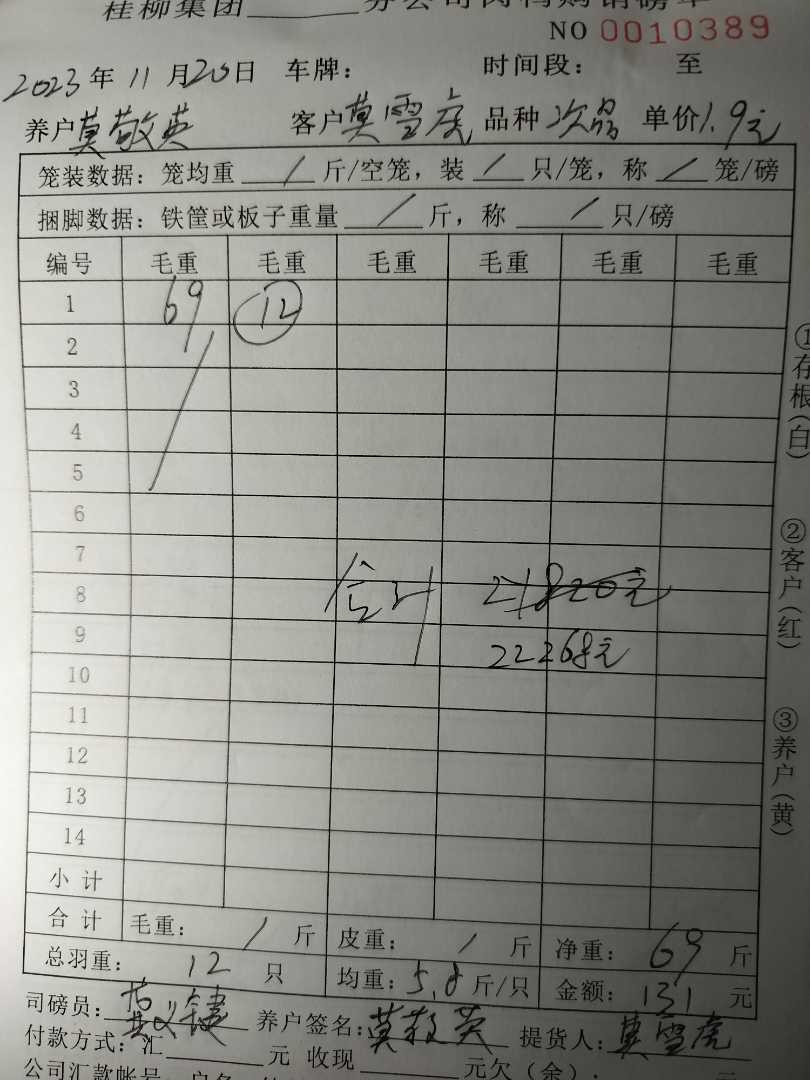 桂柳集团 分公司肉鸭购销磅单
NO 0010389
2023年11月20日 车牌： 时间段： 至
养户莫敬英 客户莫雪虎 品种 次品 单价1.9元
笼装数据：笼均重 / 斤/空笼，装 / 只/笼，称 / 笼/磅
捆脚数据：铁筐或板子重量 / 斤，称 / 只/磅
编号 毛重 毛重 毛重 毛重 毛重 毛重
1 69 12
2
3
4
5
6
7
8 合计 21820元
9 22268元
10
11
12
13
14
小计
合计 毛重： / 斤 皮重： / 斤 净重：69 斤
总羽重： 12 只 均重：5.8斤/只 金额：131 元
司磅员： 养户签名：莫敬英 提货人：莫雪虎
付款方式：汇 元 收现 元欠（余）： 元
公司汇款帐号 户名
①存根（白） ②客户（红） ③养户（黄）